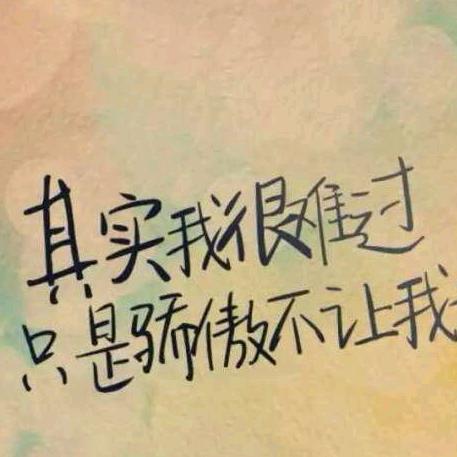 其实我很难过
只是骄傲不让我